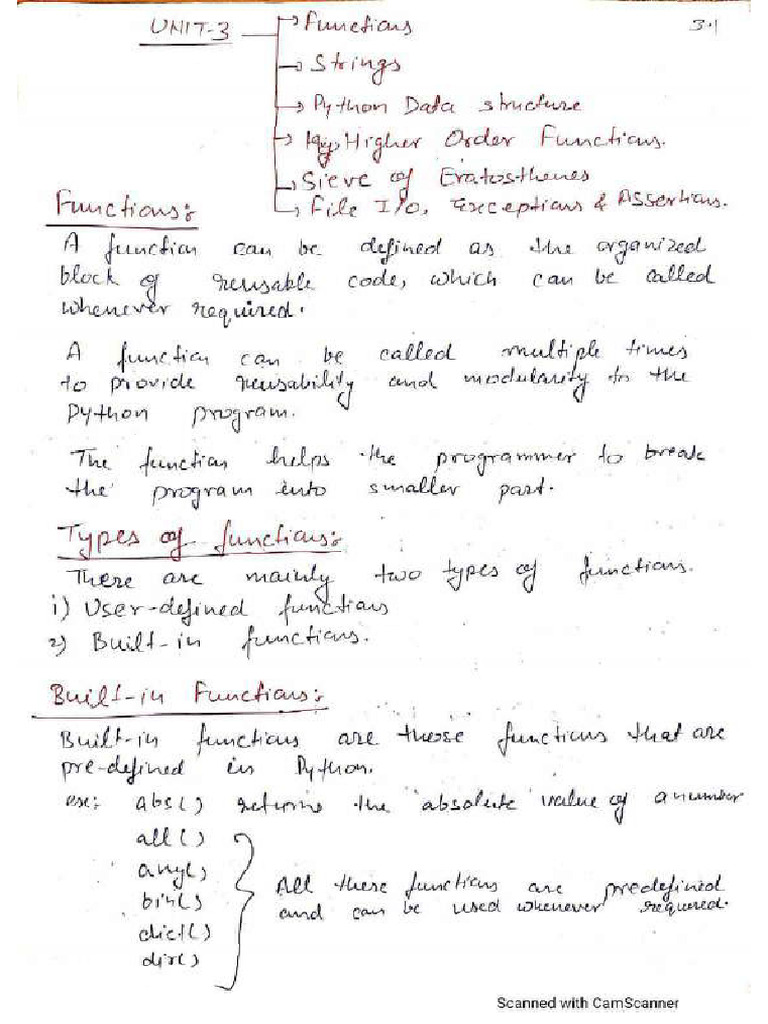 UNIT-3 → Functions 3.1
→ Strings
→ Python Data structure
→ Higher Order Functions.
→ Sieve of Eratosthenes
→ File I/O, Exceptions & Assertions.
Functions:
A function can be defined as the organized
block of reusable code, which can be called
whenever required.
A function can be called multiple times
to provide reusability and modularity to the
python program.
The function helps the programmer to break
the program into smaller part.
Types of functions:
There are mainly two types of functions.
i) User-defined functions
2) Built-in functions.
Built-in Functions:
Built-in functions are those functions that are
pre-defined in Python.
ex: abs() returns the absolute value of a number
all()
any()
bin()
dict()
dir()
All these functions are predefined
and can be used whenever required.
Scanned with CamScanner